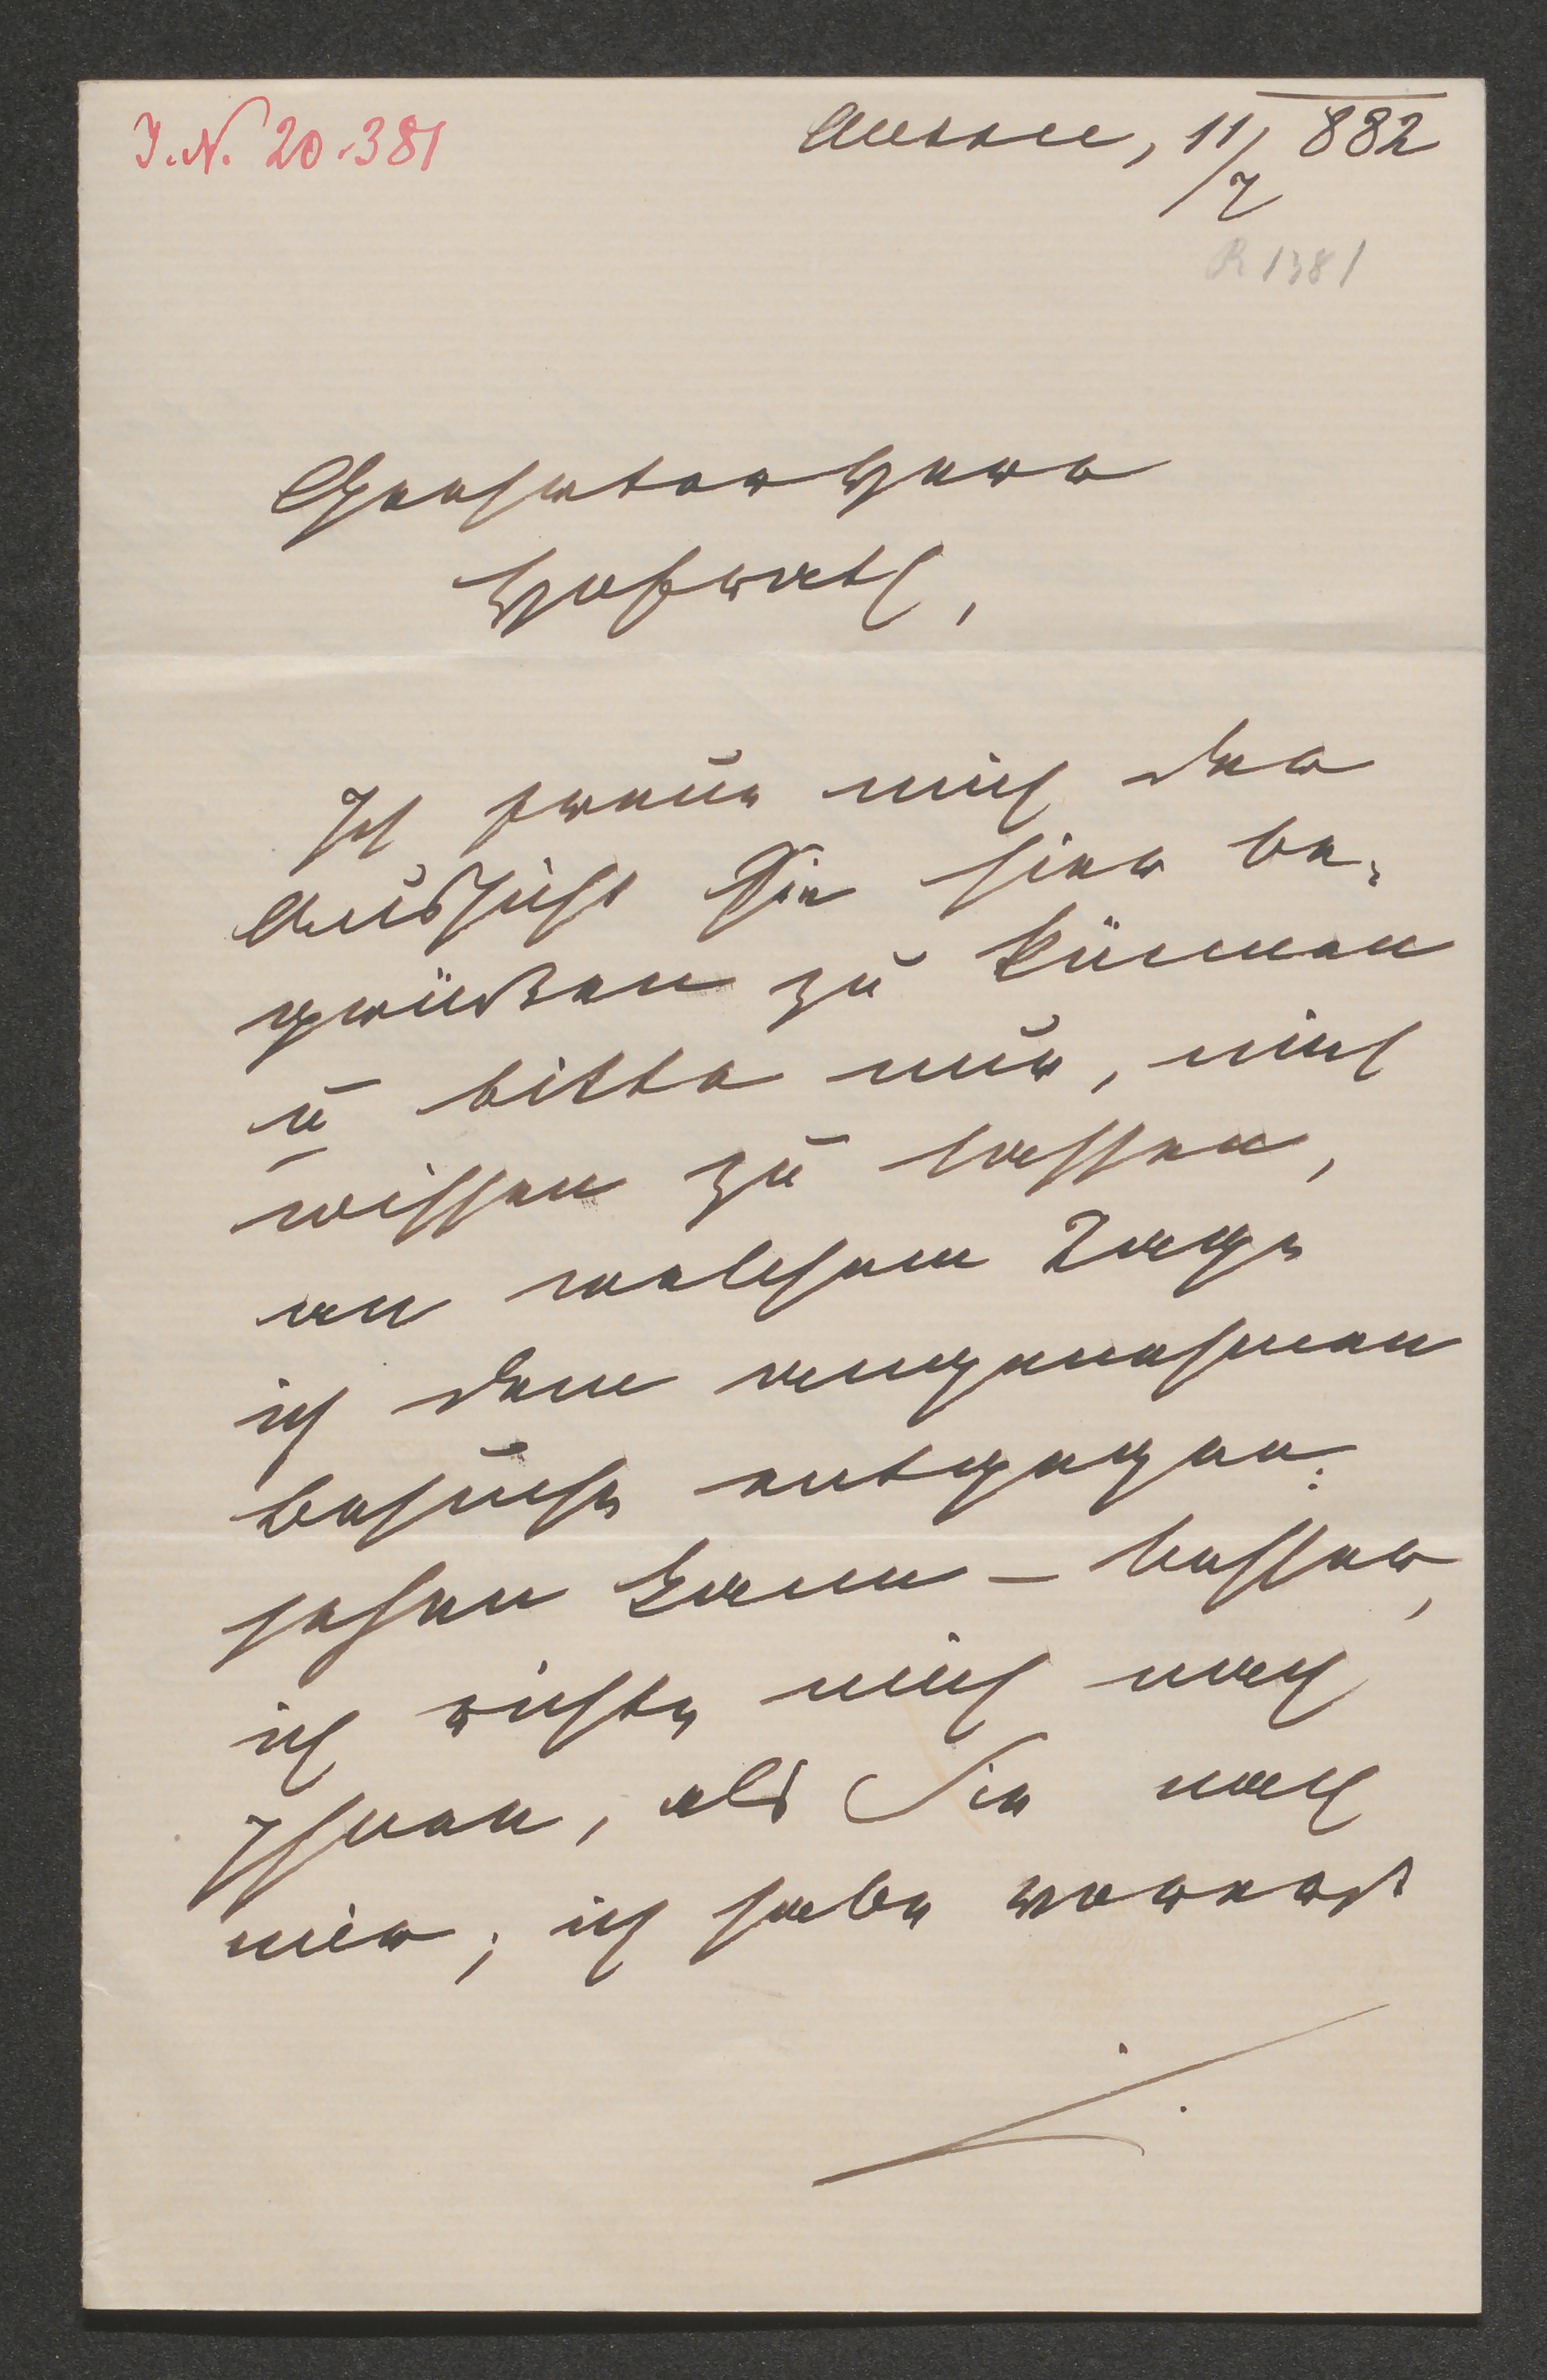 J.N. 20.381
Aussee, 11/7 882
R 1381
Geehrter Herr
Hofrath,
Ich freue mich der
Aussicht Sie hier be-
grüßen zu können
u bitte nur, mich
wissen zu lassen,
an welchem Tage
ich dem angenehmen
Besuche entgegen-
sehen kann – besser,
ich richte mich nach
Ihnen, als Sie nach
mir; ich habe vorerst